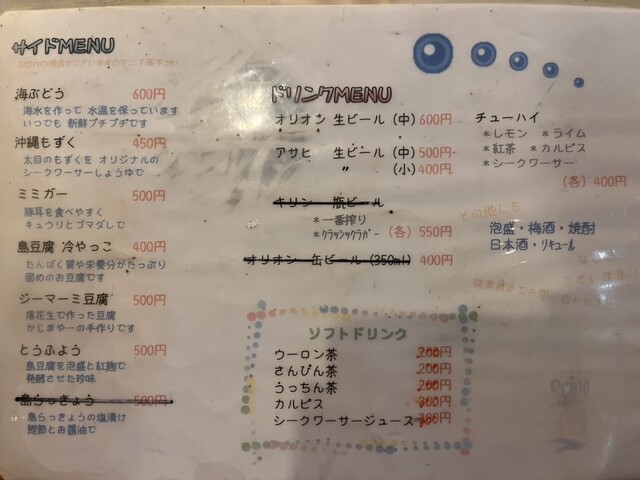 サイドMENU
海ぶどう 600円
海水を作って 水温を保っています
いつでも 新鮮プチプチです
沖縄もずく 450円
太目のもずくを オリジナルの
シークワーサーしょうゆで
ミミガー 500円
豚耳を食べやすく
キュウリとゴマダレで
島豆腐 冷やっこ 400円
たんぱく質や栄養分がたっぷり
固めのお豆腐です
ジーマーミ豆腐 500円
落花生で作った豆腐
かじまやーの手作りです
とうふよう 500円
島豆腐を泡盛と紅麹で
発酵させた珍味
島らっきょう 500円
島らっきょうの塩漬け
鰹節とお醤油で
ドリンクMENU
オリオン 生ビール (中) 600円
アサヒ 生ビール (中) 500円
〃 (小) 400円
キリン 瓶ビール
*一番搾り
*クラシックラガー (各) 550円
オリオン 缶ビール (350ml) 400円
ソフトドリンク
ウーロン茶
さんぴん茶
うっちん茶
カルピス
シークワーサージュース
チューハイ
*レモン *ライム
*紅茶 *カルピス
*シークワーサー
(各) 400円
その他にも
泡盛・梅酒・焼酎
日本酒・リキュール